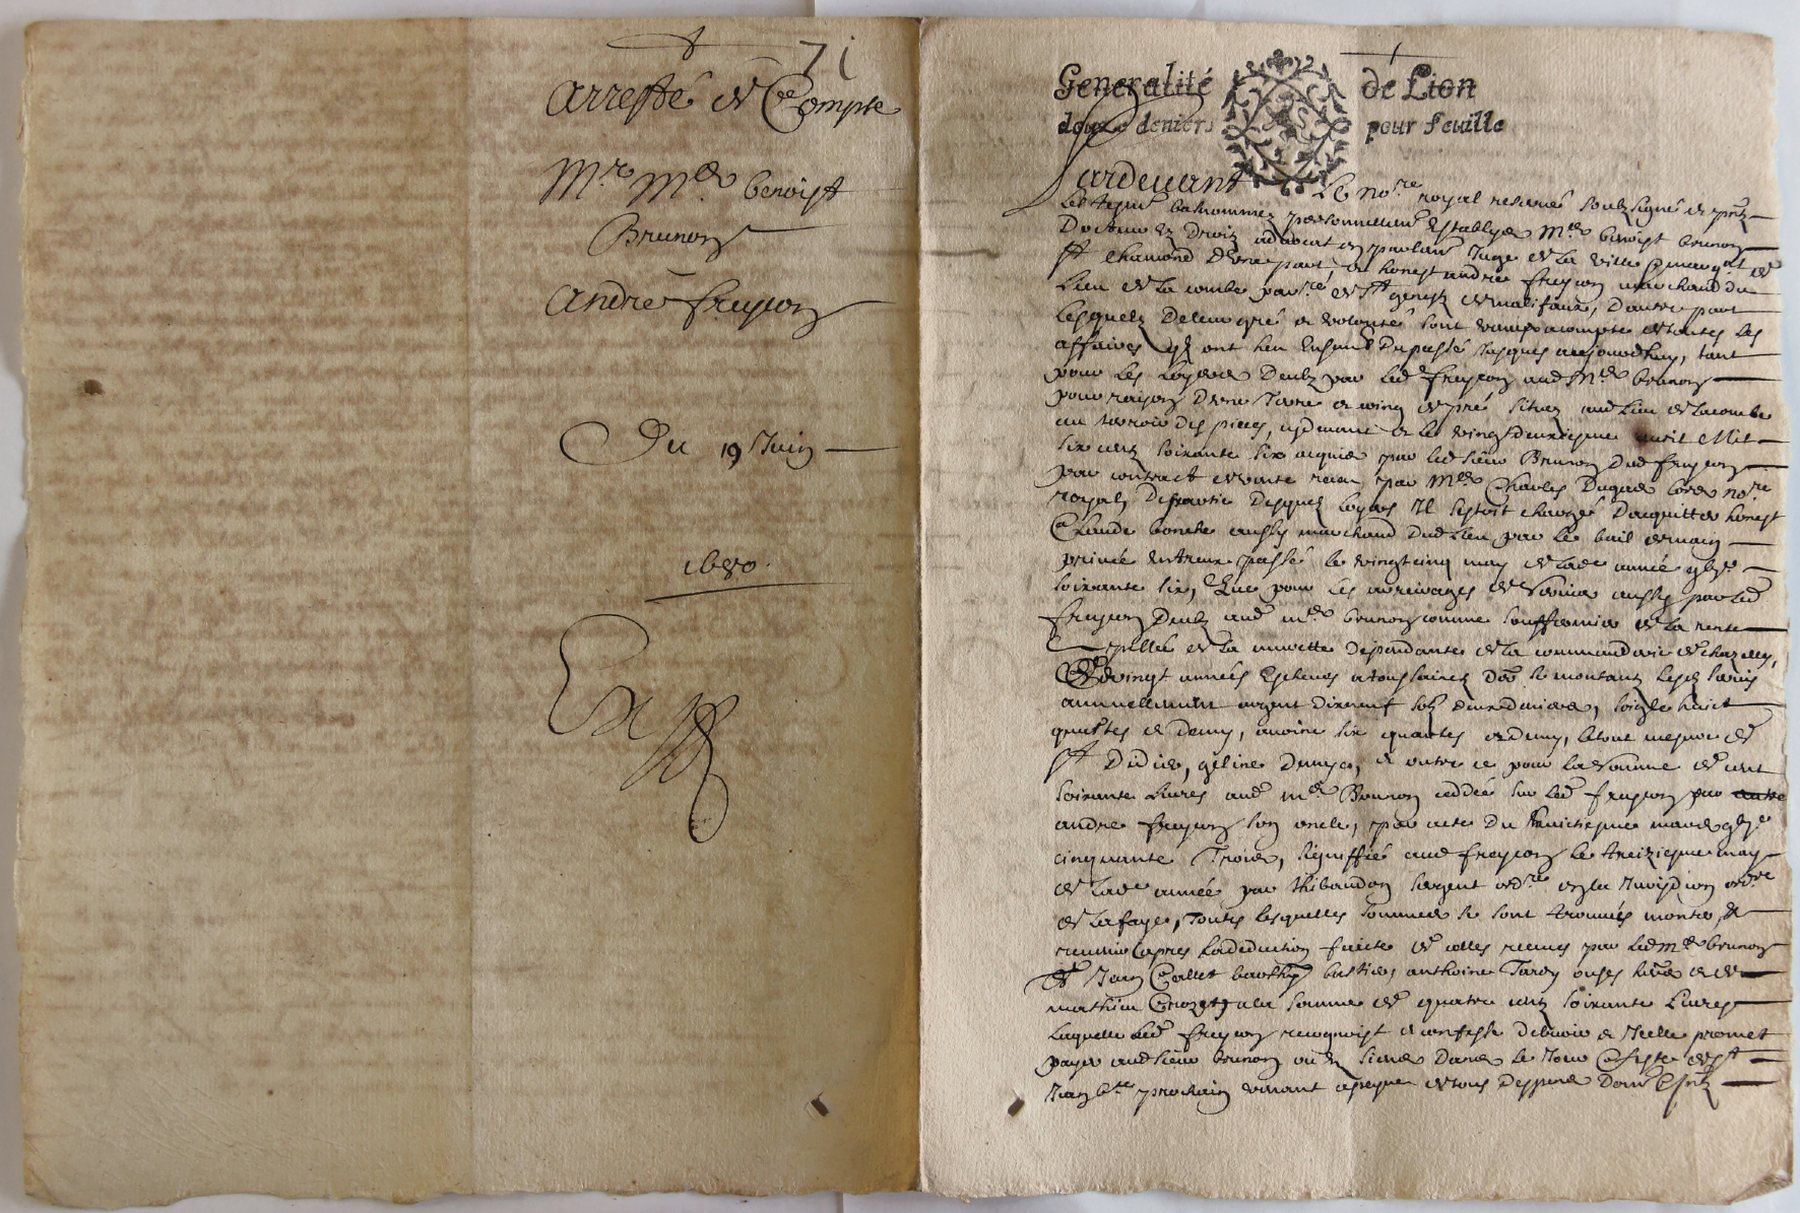 71
Arresté de Compte
Mr Me benoist
Brunon
Andre freycon
Du 19 Juin
1680.
Generalité de Lion
douze deniers pour feuille
Pardeuant Le nore royal reserué soubsigné et
bas nommez personnellemt Establys Me benoist brunon
Docteur Ez Droitz aduocat en parlemt Juge de la ville et
St Chamond D'vne part, et honest andré freycon marchand du
Lieu de la combe parre de St genest de malifaux, D'autre part
Lesquels De leur gré et volonté sont venus a compte de toutes les
affaires qz ont heu Ensemble Du passé Jusques auiourdhuy, tant
pour les Loyers Deubz par led freycon aud Me brunon
pour raison D'vne Terre et cinq de pré situez aud Lieu de Lacombe
au terroir des pieces, et le vingtdeuxiesme auril Mil
six centz soixante six acquis par led sieur Brunon Dud freycon
par contract de vente receu par Me Charles Dugas nore
royal, De partie Desquelz loyers Il sestoit chargé D'acquitter honest
Claude aussy marchand Dud Lieu, par le bail
priuée entreux passé le vingtcinq may de lade année
soixante six, Que pour les arreirages de seruis aussy par led
freycon Deubz aud Me brunon comme souffermier de la rente
appellée de la muvette dependante de la commanderie de chazelles,
De vingt années Escheues a toussaincts se montant Lesd seruis
annuellement argent dixneuf solz deux deniers, soigle huict
quartes et demy, auoine six quartes et demy, le tout mesure de
St Didier, geline demye, et outre ce pour la somme de cent
soixante Liures aud Me Brunon ceddée sur led freycon par
andre freycon son oncle, par acte Du huictiesme mars
cinquante Trois, signiffié aud freycon le treiziesme may
de lade année par thibaudon sergent ordre en la Jurisdion ordre
de lafaye, Toutes lesquelles sommes se sont trouuées monter, et
reuenir apres La deduction faicte de celles receues par led Me brunon
De Jean Collet, anthoine Tardy et de
mathieu a la somme de quatre centz soixante Liures
Laquelle led freycon recognoist et confesse debuoir et Icelle promet
payer aud sieur brunon ou es siens Dans le Jour et feste de St
Jean bte prochain venant a peyne de tous despens Dom